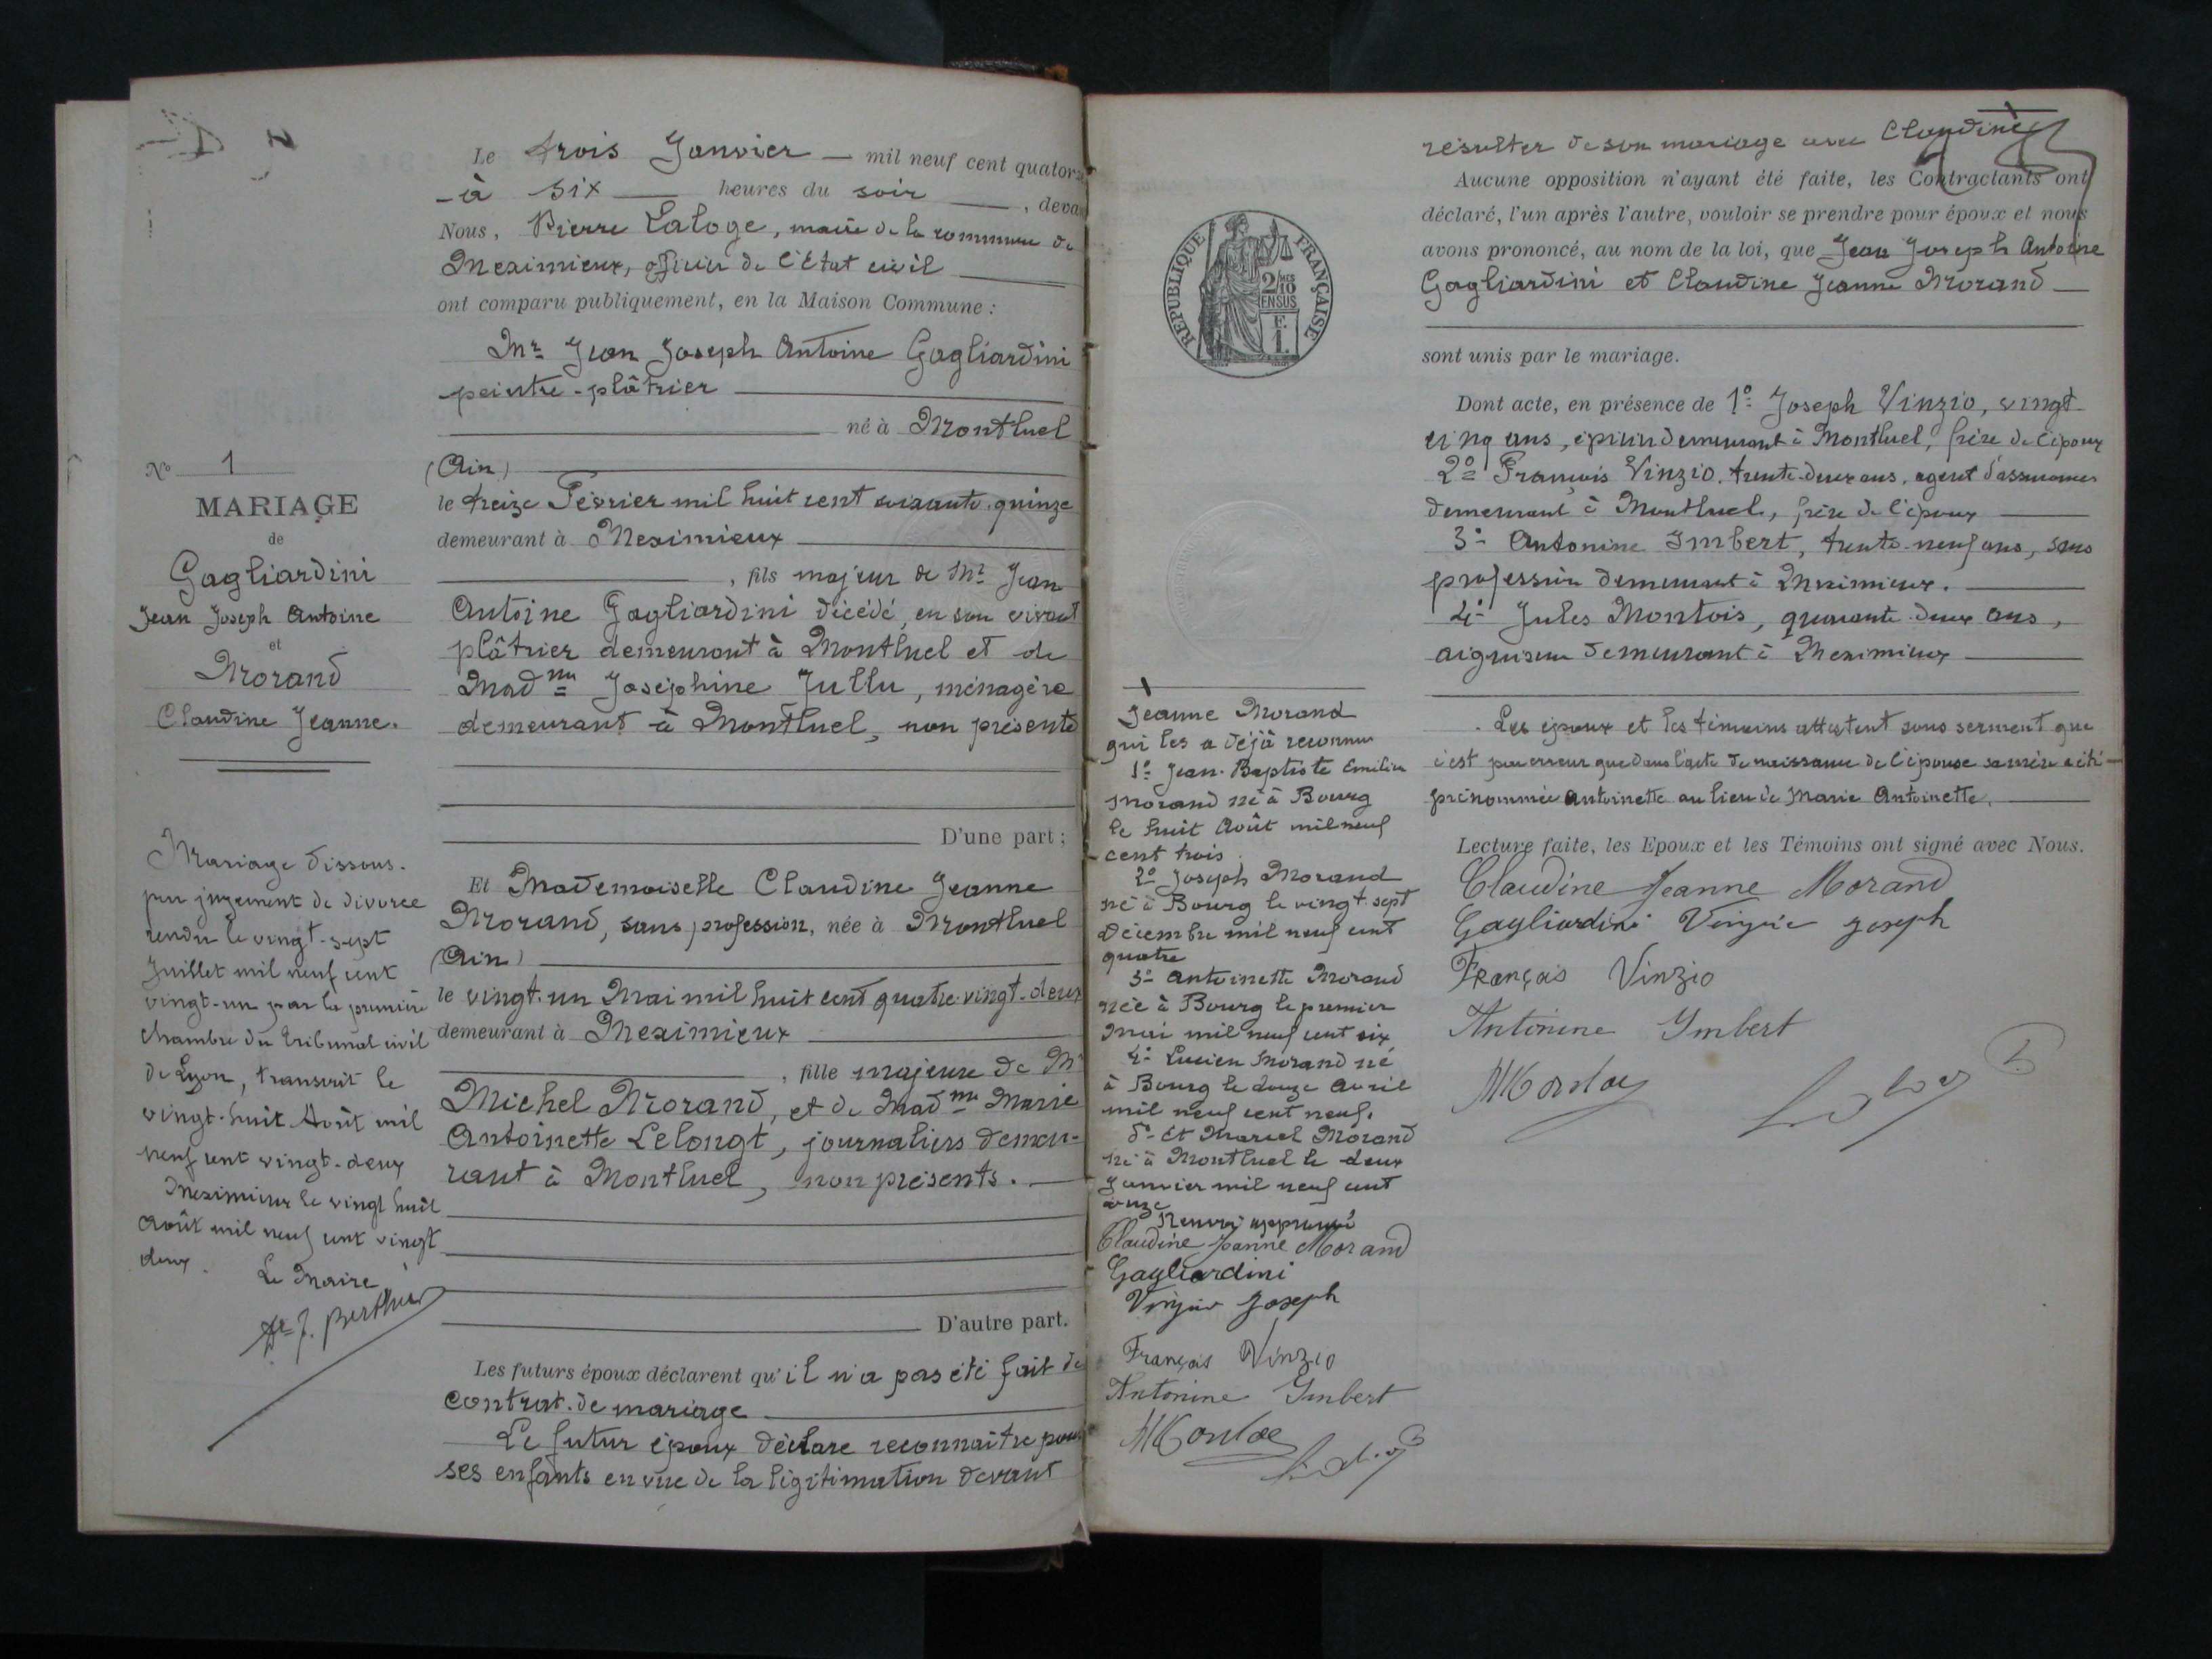 Le trois Janvier — mil neuf cent quatorz
- à six — heures du soir —, deva
Nous, Pierre Laloge, maire de la commune de
Meximieux, officier de l'État civil
ont comparu publiquement, en la Maison Commune :
Mr Jean Joseph Antoine Gagliardini
peintre-plâtrier
né à Montluel
(Ain)
le treize Février mil huit cent soixante-quinze
demeurant à Meximieux
, fils majeur de Mr Jean
Antoine Gagliardini décédé, en son vivant
plâtrier demeurant à Montluel et de
Mad me Joséphine Jullu, ménagère
demeurant à Montluel, non présente
D'une part ;
Et Mademoiselle Claudine Jeanne
Morand, sans profession, née à Montluel
(Ain)
le vingt-un Mai mil huit cent quatre-vingt-deux
demeurant à Meximieux
, fille majeure de Mr
Michel Morand, et de Mad me Marie
Antoinette Lelongt, journaliers demeu-
rant à Montluel, non présents.
D'autre part.
Les futurs époux déclarent qu'il n'a pas été fait de
contrat de mariage
Le futur époux déclare reconnaître pour
ses enfants en vue de la légitimation devant
No 1
MARIAGE
de
Gagliardini
Jean Joseph Antoine
et
Morand
Claudine Jeanne.
Mariage dissous.
par jugement de divorce
rendu le vingt-sept
Juillet mil neuf cent
vingt-un par la première
chambre du Tribunal civil
de Lyon, transcrit le
vingt-huit Août mil
neuf cent vingt-deux
Meximieux le vingt huit
Août mil neuf cent vingt
deux.
Le Maire
Dr J. Berthier
REPUBLIQUE FRANÇAISE
2/10 EN SUS
F.
1.
Jeanne Morand
qui les a déjà reconnu
1º Jean-Baptiste Emilien
Morand né à Bourg
le huit Août mil neuf
cent trois
2º Joseph Morand
né à Bourg le vingt-sept
Décembre mil neuf cent
quatre
3º Antoinette Morand
née à Bourg le premier
Mai mil neuf cent six
4º Lucien Morand né
à Bourg le douze Avril
mil neuf cent neuf.
5º Et Marcel Morand
né à Montluel le deux
Janvier mil neuf cent
onze
Renvoi approuvé
Claudine Jeanne Morand
Gagliardini
Vinzio Joseph
François Vinzio
Antonine Imbert
résulter de son mariage avec Claudine
Aucune opposition n'ayant été faite, les Contractants ont
déclaré, l'un après l'autre, vouloir se prendre pour époux et nous
avons prononcé, au nom de la loi, que Jean Joseph Antoine
Gagliardini et Claudine Jeanne Morand —
sont unis par le mariage.
Dont acte, en présence de 1º Joseph Vinzio, vingt-
cinq ans, épicier demeurant à Montluel, frère de l'époux
2º François Vinzio. trente-deux ans, agent d'assurances
demeurant à Montluel, frère de l'époux
3º Antonine Imbert, trente-neuf ans, sans
profession demeurant à Meximieux.
4º Jules Montois, quarante-deux ans,
aiguiseur demeurant à Meximieux
Les époux et les témoins attestent sous serment que
c'est par erreur que dans l'acte de naissance de l'épouse sa mère a été
prénommée Antoinette au lieu de Marie Antoinette.
Lecture faite, les Epoux et les Témoins ont signé avec Nous.
Claudine Jeanne Morand
Gagliardini Vinzio Joseph
François Vinzio
Antonine Imbert